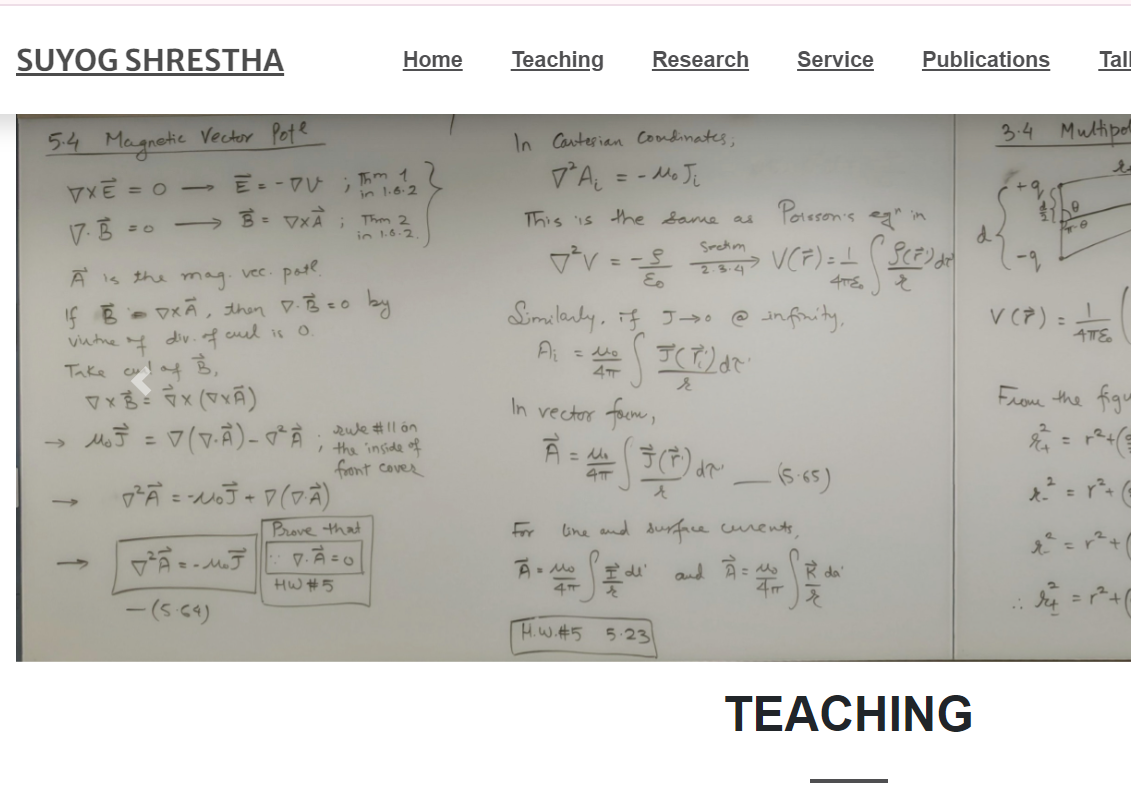 SUYOG SHRESTHA
Home Teaching Research Service Publications Tall
5.4 Magnetic Vector Potl
∇×E⃗ = 0 → E⃗ = -∇V ; Thm 1 in 1.6.2
∇·B⃗ = 0 → B⃗ = ∇×A⃗ ; Thm 2 in 1.6.2
A⃗ is the mag. vec. potl.
If B⃗ = ∇×A⃗, then ∇·B⃗ = 0 by
virtue of div. of curl is 0.
Take curl of B⃗,
∇×B⃗ = ∇⃗×(∇×A⃗)
→ μ₀J⃗ = ∇(∇·A⃗) - ∇²A⃗ ; rule #11 on
the inside of
front cover
→ ∇²A⃗ = -μ₀J⃗ + ∇(∇·A⃗)
→ ∇²A⃗ = -μ₀J⃗
Prove that
∵ ∇·A⃗ = 0
HW #5
—(5.64)
In Cartesian Coordinates,
∇²Aᵢ = -μ₀Jᵢ
This is the same as Poisson's eqⁿ in
∇²V = -ρ/ε₀ → Section 2.3.4 V(r⃗) = 1/4πε₀ ∫ ρ(r⃗')/r dτ'
Similarly, if J→0 @ infinity,
Aᵢ = μ₀/4π ∫ J⃗(r⃗ᵢ')/r dτ'
In vector form,
A⃗ = μ₀/4π ∫ J⃗(r⃗')/r dτ' —(5.65)
For line and surface currents,
A⃗ = μ₀/4π ∫ I⃗/r dl' and A⃗ = μ₀/4π ∫ K⃗/r da'
H.W.#5 5.23
3.4 Multipol
+q
d/2
θ
π-θ
d
-q
V(r⃗) = 1/4πε₀ (
From the figu
r₊² = r² + (
r₋² = r² + (
r₋² = r² + (
∴ r±² = r² + (
TEACHING